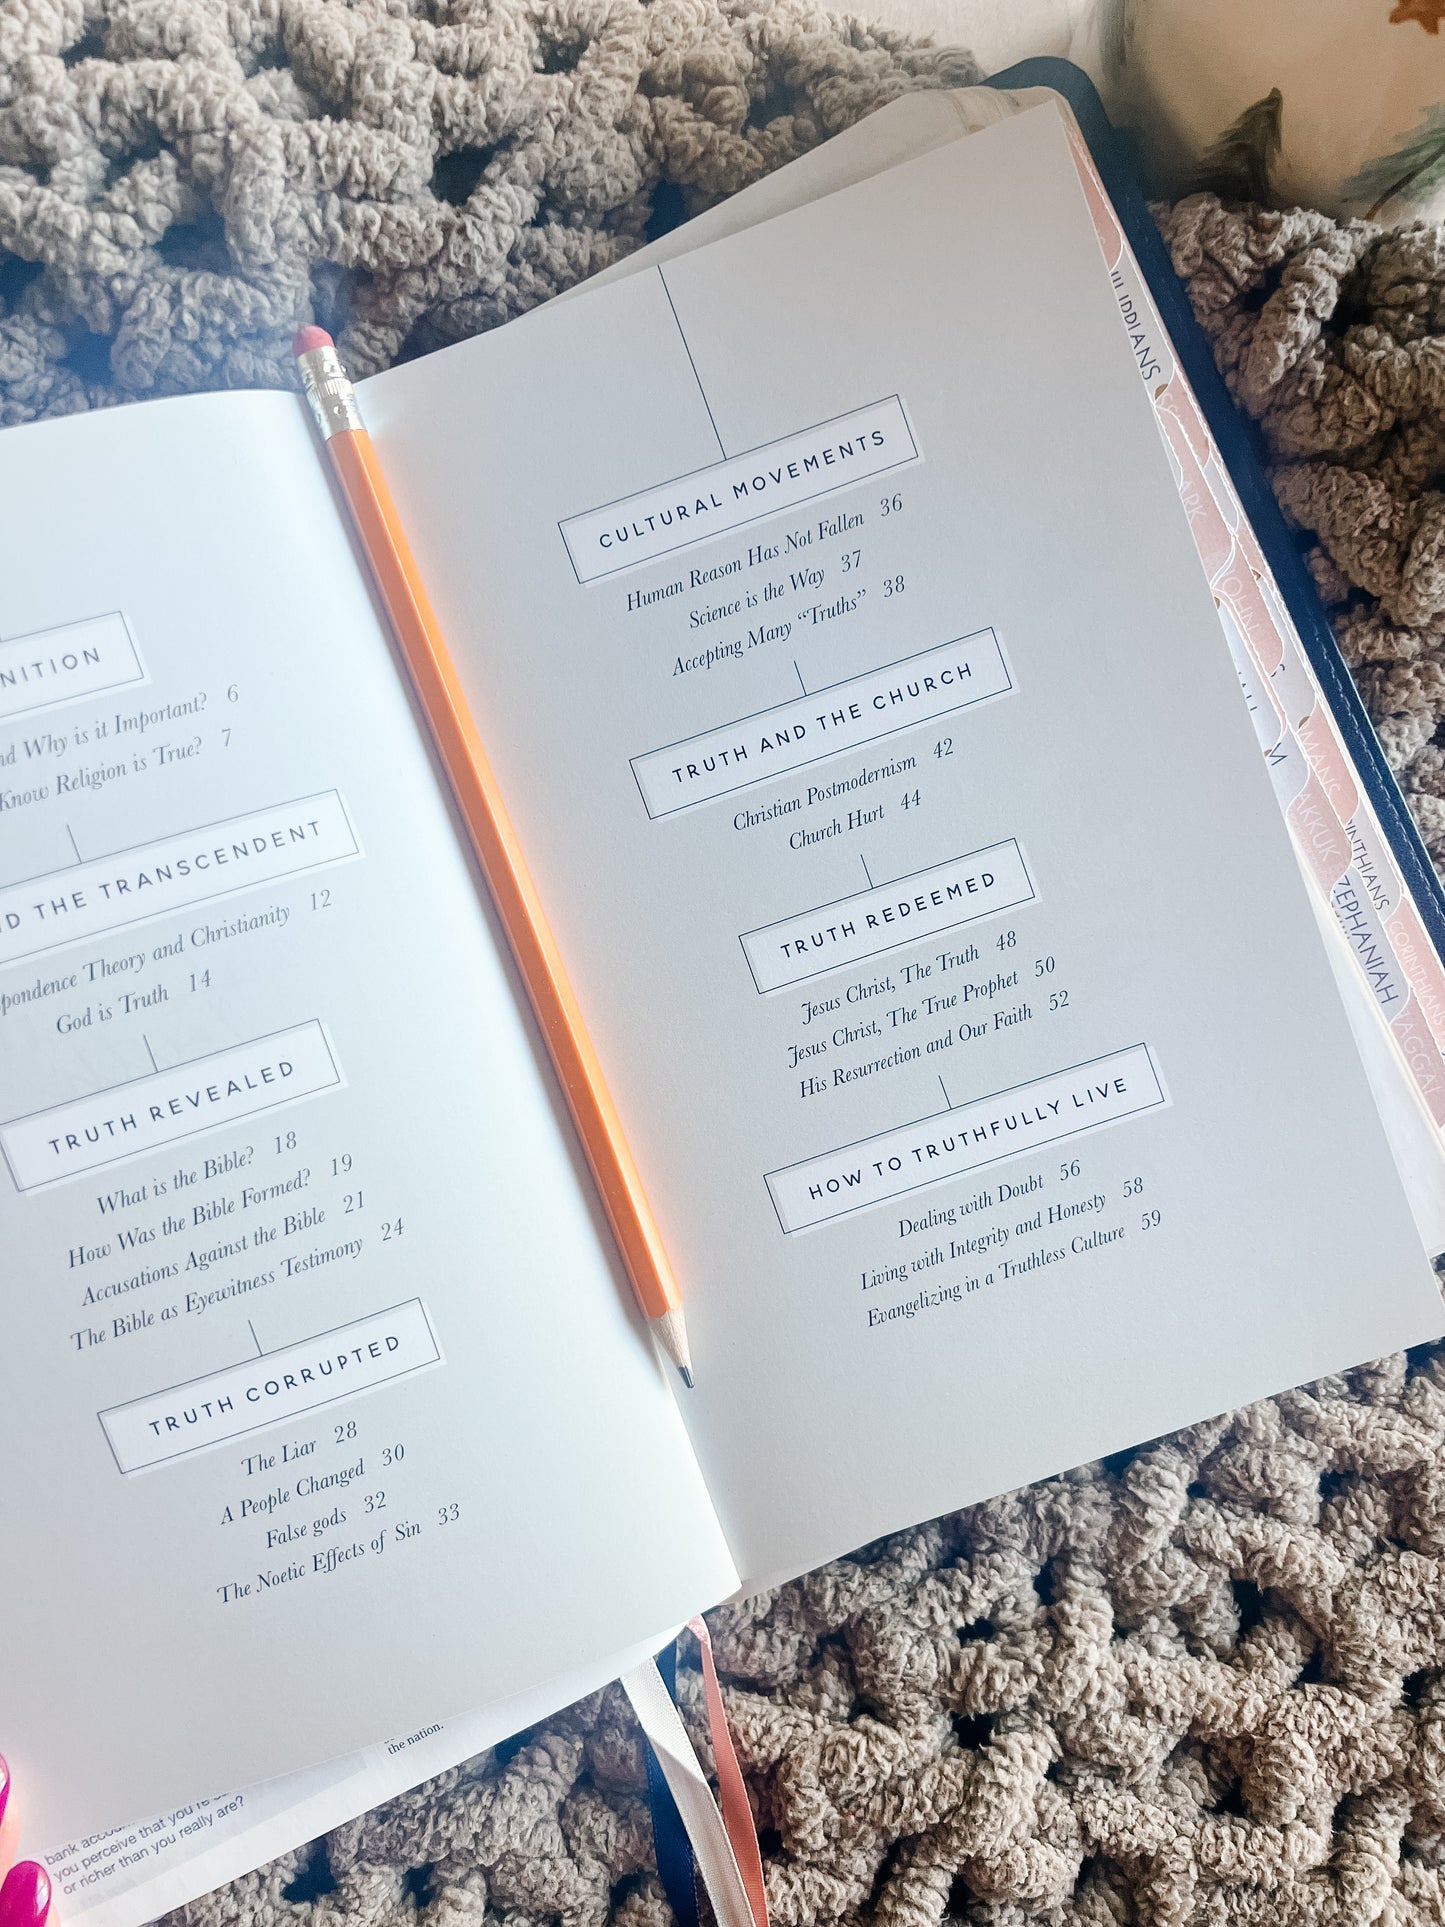 nd Why is it Important? 6
Know Religion is True? 7
D THE TRANSCENDENT
spondence Theory and Christianity 12
God is Truth 14
TRUTH REVEALED
What is the Bible? 18
How Was the Bible Formed? 19
Accusations Against the Bible 21
The Bible as Eyewitness Testimony 24
TRUTH CORRUPTED
The Liar 28
A People Changed 30
False gods 32
The Noetic Effects of Sin 33
CULTURAL MOVEMENTS
Human Reason Has Not Fallen 36
Science is the Way 37
Accepting Many “Truths” 38
TRUTH AND THE CHURCH
Christian Postmodernism 42
Church Hurt 44
TRUTH REDEEMED
Jesus Christ, The Truth 48
Jesus Christ, The True Prophet 50
His Resurrection and Our Faith 52
HOW TO TRUTHFULLY LIVE
Dealing with Doubt 56
Living with Integrity and Honesty 58
Evangelizing in a Truthless Culture 59
the nation.
bank
you perceive that you're
or richer than you really are?
ARK
JOHN
MANS
AKKUK
INTHIANS
ZEPHANIAH
CORINTHIANS
HAGGAI